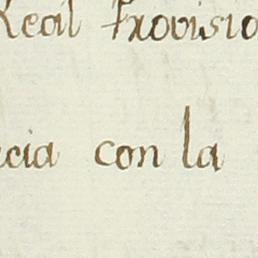 Real Provisio
cia con la